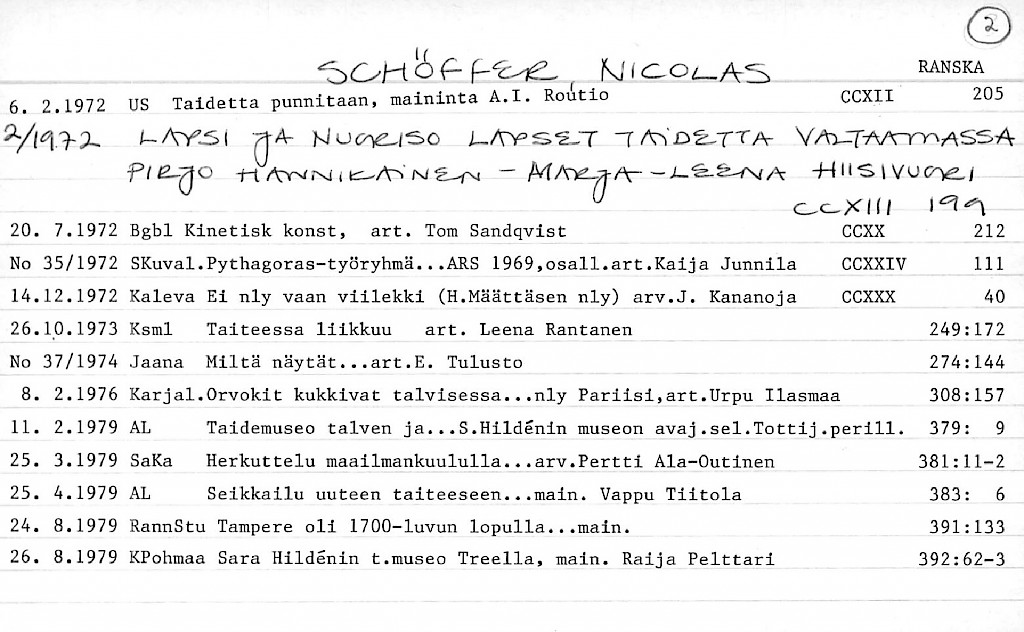 2
SCHÖFFER, NICOLAS RANSKA
6. 2.1972 US Taidetta punnitaan, maininta A.I. Routio CCXII 205
2/1972 LAPSI JA NUORISO LAPSET TAIDETTA VALTAAMASSA
PIRJO HANNIKAINEN - MARJA-LEENA HIISIVUORI
CCXIII 199
20. 7.1972 Bgbl Kinetisk konst, art. Tom Sandqvist CCXX 212
No 35/1972 SKuval.Pythagoras-työryhmä...ARS 1969,osall.art.Kaija Junnila CCXXIV 111
14.12.1972 Kaleva Ei nly vaan viilekki (H.Määttäsen nly) arv.J. Kananoja CCXXX 40
26.10.1973 Ksml Taiteessa liikkuu art. Leena Rantanen 249:172
No 37/1974 Jaana Miltä näytät...art.E. Tulusto 274:144
8. 2.1976 Karjal.Orvokit kukkivat talvisessa...nly Pariisi,art.Urpu Ilasmaa 308:157
11. 2.1979 AL Taidemuseo talven ja...S.Hildénin museon avaj.sel.Tottij.perill. 379: 9
25. 3.1979 SaKa Herkuttelu maailmankuululla...arv.Pertti Ala-Outinen 381:11-2
25. 4.1979 AL Seikkailu uuteen taiteeseen...main. Vappu Tiitola 383: 6
24. 8.1979 RannStu Tampere oli 1700-luvun lopulla...main. 391:133
26. 8.1979 KPohmaa Sara Hildénin t.museo Treella, main. Raija Pelttari 392:62-3